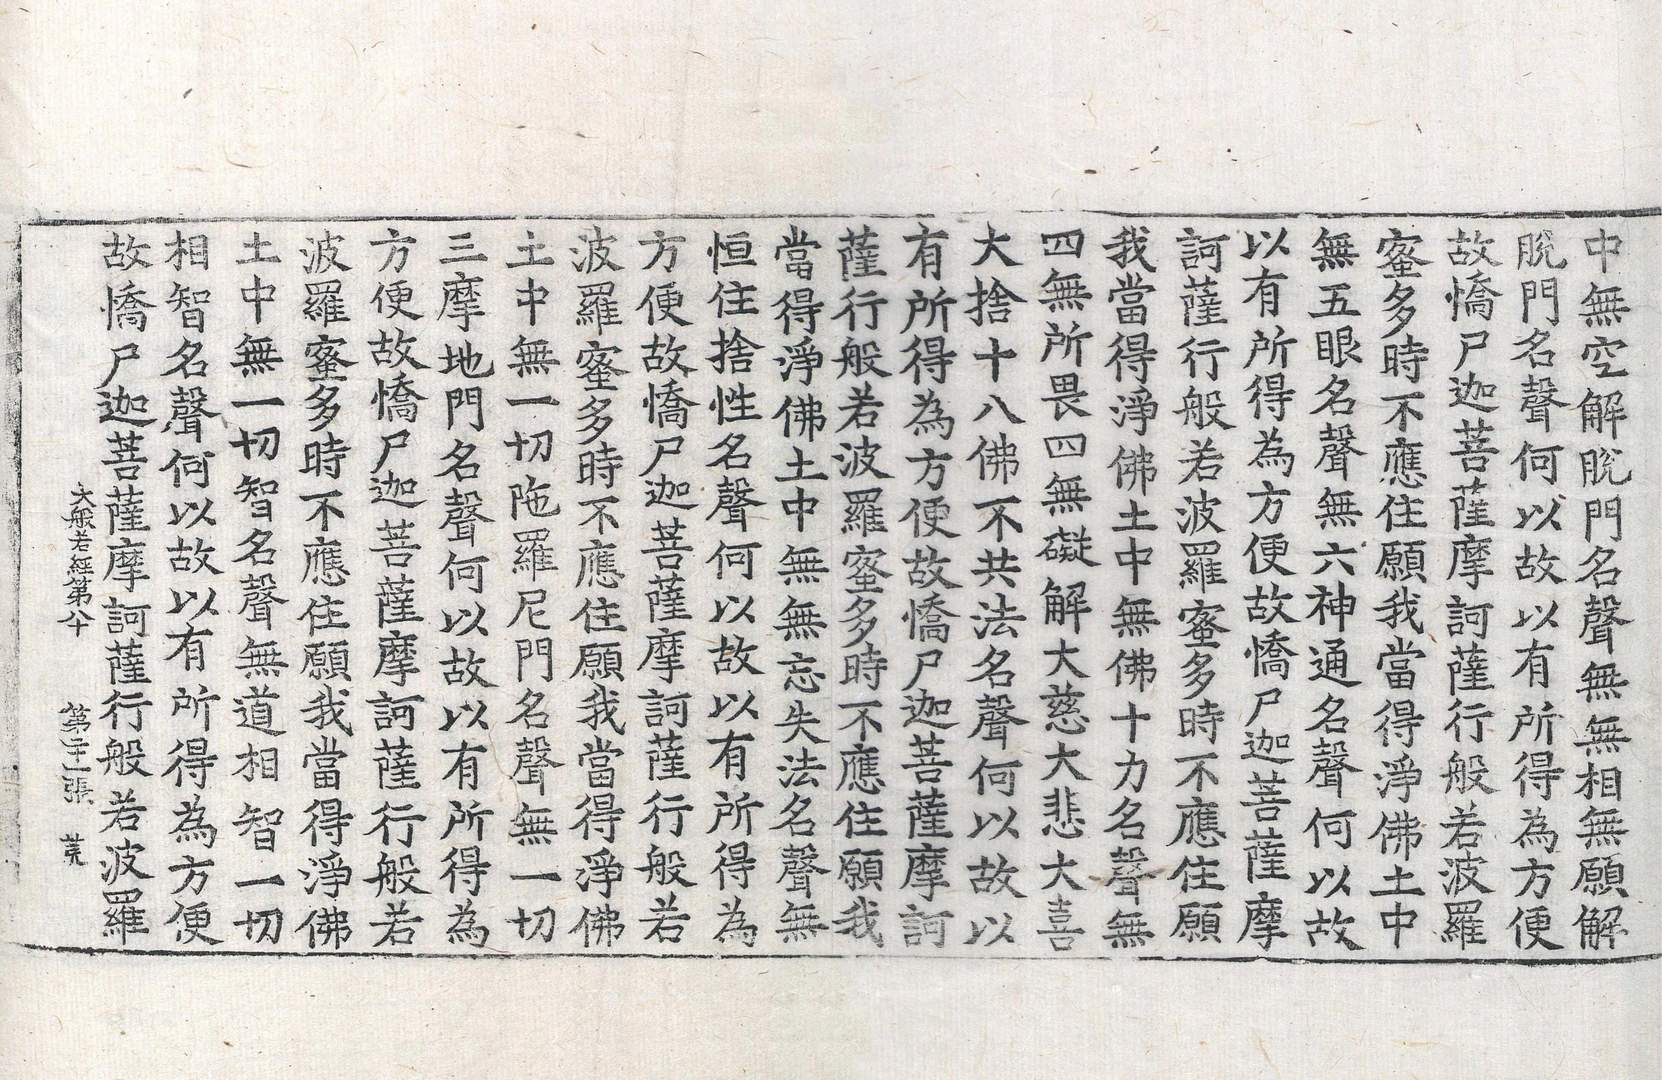 中無空解脫門名聲無無相無願解
脫門名聲何以故以有所得為方便
故憍尸迦菩薩摩訶薩行般若波羅
蜜多時不應住願我當得淨佛土中
無五眼名聲無六神通名聲何以故
以有所得為方便故憍尸迦菩薩摩
訶薩行般若波羅蜜多時不應住願
我當得淨佛土中無佛十力名聲無
四無所畏四無礙解大慈大悲大喜
大捨十八佛不共法名聲何以故以
有所得為方便故憍尸迦菩薩摩訶
薩行般若波羅蜜多時不應住願我
當得淨佛土中無無忘失法名聲無
恒住捨性名聲何以故以有所得為
方便故憍尸迦菩薩摩訶薩行般若
波羅蜜多時不應住願我當得淨佛
土中無一切陁羅尼門名聲無一切
三摩地門名聲何以故以有所得為
方便故憍尸迦菩薩摩訶薩行般若
波羅蜜多時不應住願我當得淨佛
土中無一切智名聲無道相智一切
相智名聲何以故以有所得為方便
故憍尸迦菩薩摩訶薩行般若波羅
大般若經第八十 第二十一張 荒